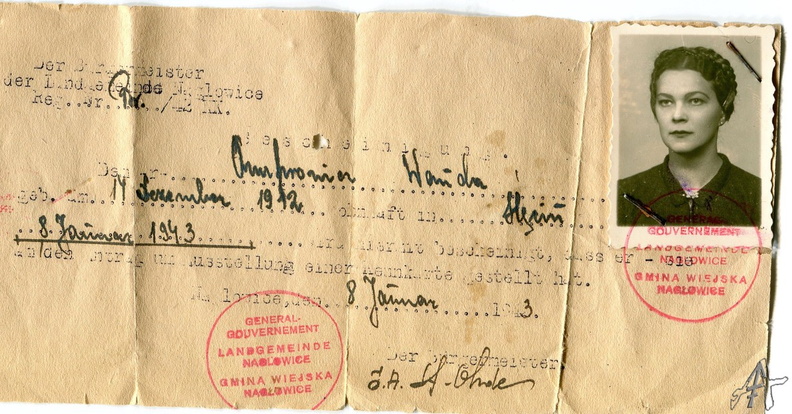 Der Bürgermeister
der Landgemeinde Naglowice
Reg. Nr. /42 KK.
Bescheinigung.
Dem-r Wanda
geb. am 14 Dezember 1912 ohnhaft in
8. Januar 1943 wird hiermit bescheinigt, dass er - sie
an den Antrag um Ausstellung einer Kennkarte gestellt hat.
Naglowice, den 8 Januar 1943.
Der Bürgermeister
J.A.
GENERAL-
GOUVERNEMENT
LANDGEMEINDE
NAGŁOWICE
GMINA WIEJSKA
NAGŁOWICE
GENERAL-
GOUVERNEMENT
LANDGEMEINDE
NAGŁOWICE
GMINA WIEJSKA
NAGŁOWICE